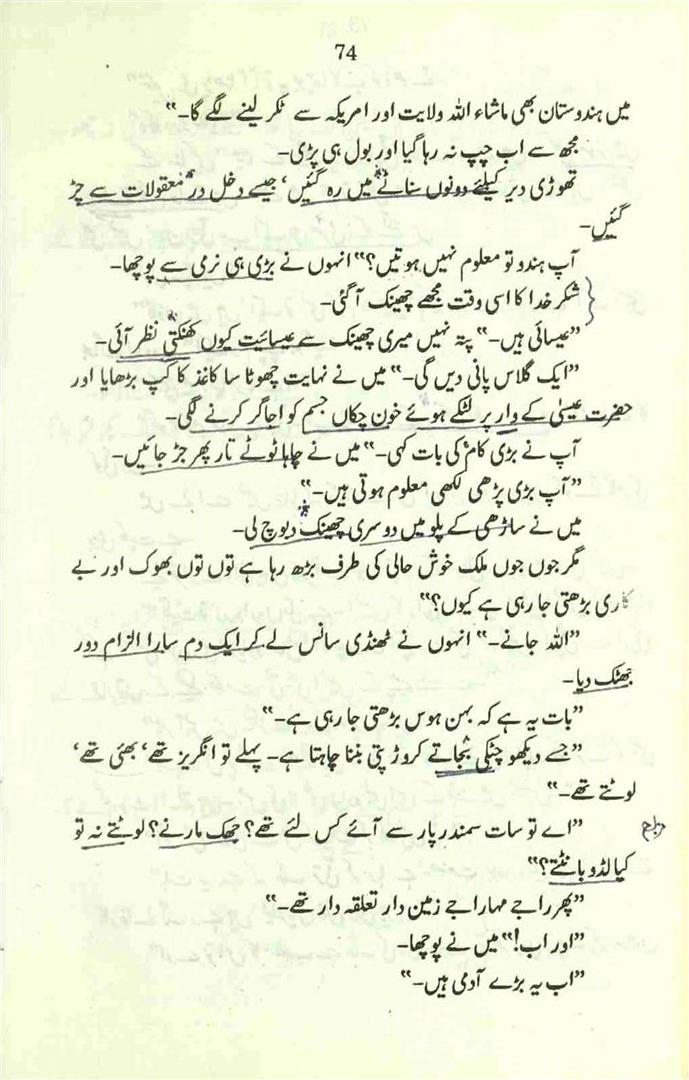 74
میں ہندوستان بھی ماشاء اللہ ولایت اور امریکہ سے ٹکر لینے لگے گا۔"
مجھ سے اب چپ نہ رہا گیا اور بول ہی پڑی۔
تھوڑی دیر کیلئے دونوں سناٹے میں رہ گئیں' جیسے دخل در معقولات سے چڑ
گئیں۔
آپ ہندو تو معلوم نہیں ہوتیں؟" انہوں نے بڑی ہی نرمی سے پوچھا۔
شکر خدا کا اسی وقت مجھے چھینک آ گئی۔
"عیسائی ہیں۔" پتہ نہیں میری چھینک سے عیسائیت کیوں کھنکتی نظر آئی۔
"ایک گلاس پانی دیں گی۔" میں نے نہایت چھوٹا سا کاغذ کا کپ بڑھایا اور
حضرت عیسیٰ کے وار پر لٹکے ہوئے خون چکاں جسم کو اجاگر کرنے لگی۔
آپ نے بڑی کام کی بات کہی۔" میں نے چاہا ٹوٹے تار پھر جڑ جائیں۔
"آپ بڑی پڑھی لکھی معلوم ہوتی ہیں۔"
میں نے ساڑھی کے پلو میں دوسری چھینک دبوچ لی۔
مگر جوں جوں ملک خوش حالی کی طرف بڑھ رہا ہے توں توں بھوک اور بے
کاری بڑھتی جا رہی ہے کیوں؟"
"اللہ جانے۔" انہوں نے ٹھنڈی سانس لے کر ایک دم سارا الزام دور
بھٹک دیا۔
"بات یہ ہے کہ بہن ہوس بڑھتی جا رہی ہے۔"
"جسے دیکھو چٹکی بجاتے کروڑ پتی بننا چاہتا ہے۔ پہلے تو انگریز تھے' بھئی تھے'
لوٹتے تھے۔"
"اے تو سات سمندر پار سے آئے کس لئے تھے؟ جھک مارنے؟ لوٹتے نہ تو
کیا لڈو بانٹتے؟"
"پھر راجے مہاراجے زمین دار تعلقہ دار تھے۔"
"اور اب!" میں نے پوچھا۔
"اب یہ بڑے آدمی ہیں۔"